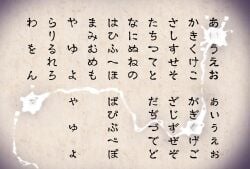 あいうえお
かきくけこ
さしすせそ
たちつてと
なにぬねの
はひふへほ
まみむめも
やゆよ
らりるれろ
わをん
ぁぃぅぇぉ
がぎぐげご
ざじずぜぞ
だぢづでど
ばびぶべぼ
ゃゅょ